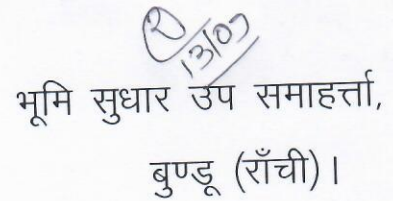 13/03
भूमि सुधार उप समाहर्त्ता,
बुण्डू (राँची)।